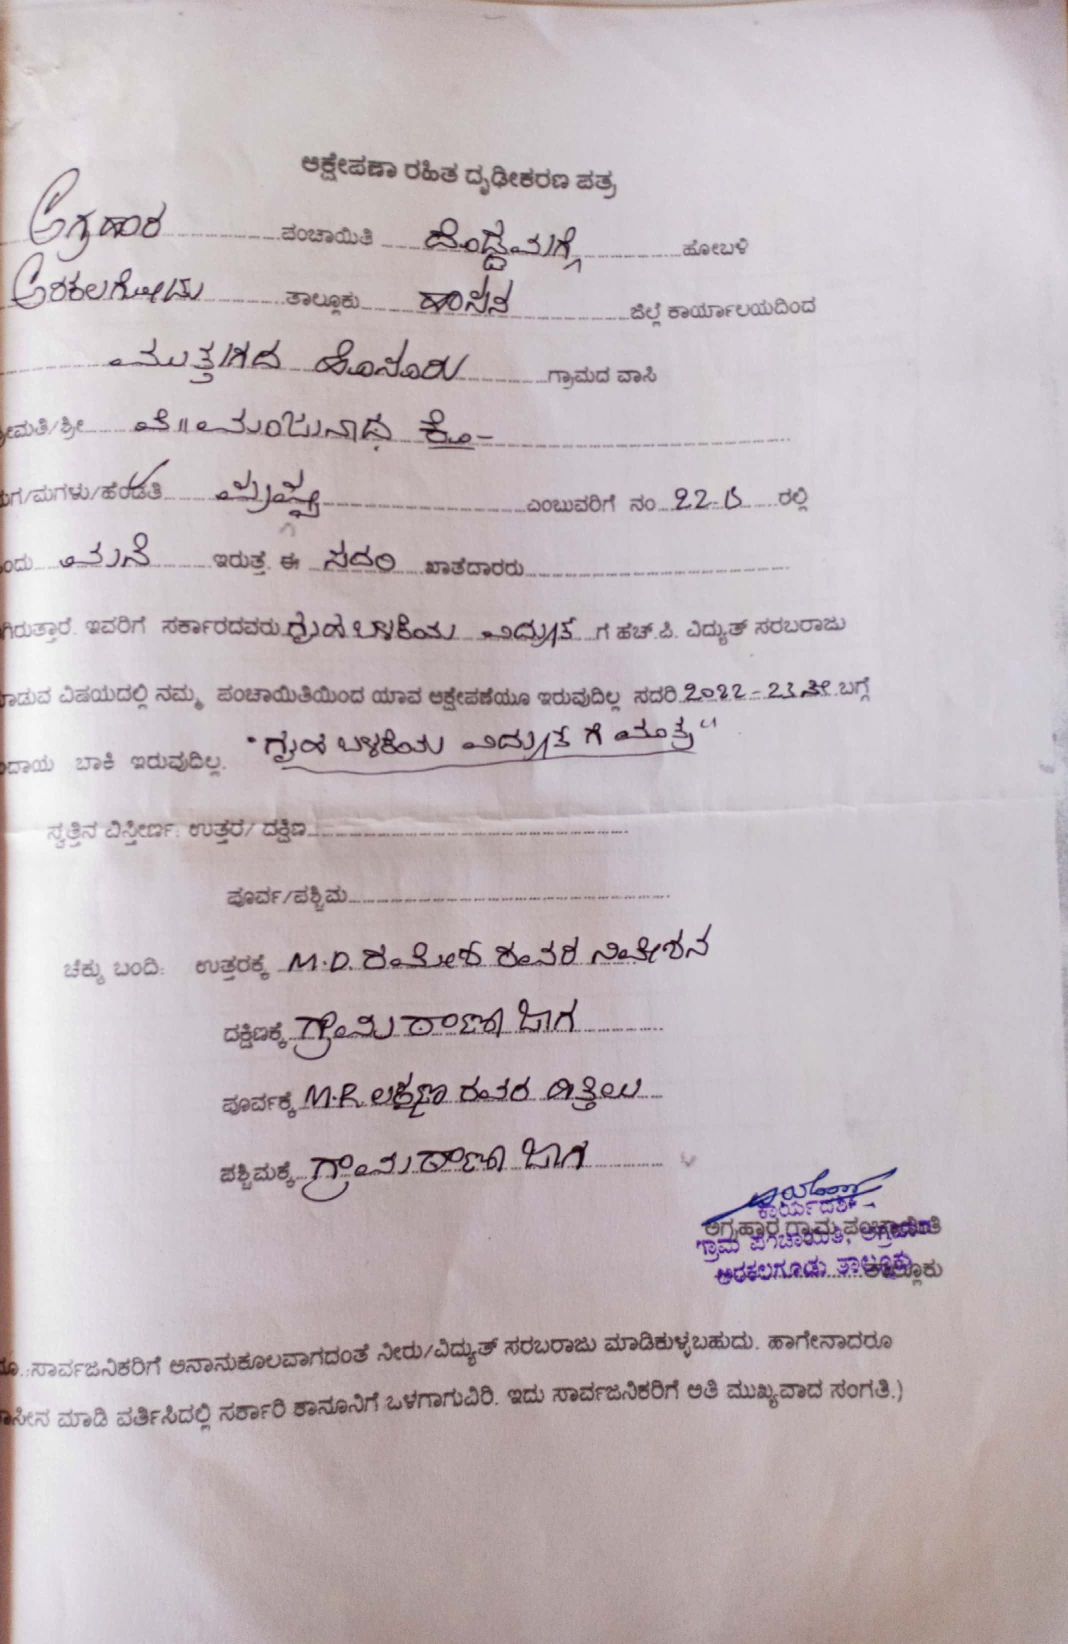 ಆಕ್ಷೇಪಣಾ ರಹಿತ ದೃಢೀಕರಣ ಪತ್ರ
ಅಗ್ರಹಾರ ಪಂಚಾಯಿತಿ ದೊಡ್ಡಮಗ್ಗೆ ಹೋಬಳಿ
ಅರಕಲಗೋಡು ತಾಲ್ಲೂಕು ಹಾಸನ ಜಿಲ್ಲೆ ಕಾರ್ಯಾಲಯದಿಂದ
ಮುತ್ತಗದ ಹೊಸೂರು ಗ್ರಾಮದ ವಾಸಿ
ಮತಿ/ಶ್ರೀ ಮಂಜುನಾಥ ಕೊಂ
ಮಗಳು/ಹೆಂಡತಿ ಪುಷ್ಪ ಎಂಬುವರಿಗೆ ನಂ ರಲ್ಲಿ
ಮನೆ ಇರುತ್ತೆ. ಈ ಸದರಿ ಖಾತೆದಾರರು
ಗಿರುತ್ತಾರೆ. ಇವರಿಗೆ ಸರ್ಕಾರದವರು ಗೃಹ ಬಳಕೆಯ ವಿದ್ಯುತ್ ಗೆ ಹೆಚ್.ಪಿ. ವಿದ್ಯುತ್ ಸರಬರಾಜು
ಮಾಡುವ ವಿಷಯದಲ್ಲಿ ನಮ್ಮ ಪಂಚಾಯಿತಿಯಿಂದ ಯಾವ ಆಕ್ಷೇಪಣೆಯೂ ಇರುವುದಿಲ್ಲ ಸದರಿ 2022-23ನೇ ಬಗ್ಗೆ
ಬಾಕಿ ಇರುವುದಿಲ್ಲ. "ಗೃಹ ಬಳಕೆಯ ವಿದ್ಯುತ್ ಗೆ ಮಾತ್ರ"
ಸ್ವತ್ತಿನ ವಿಸ್ತೀರ್ಣ: ಉತ್ತರ/ ದಕ್ಷಿಣ
ಪೂರ್ವ/ಪಶ್ಚಿಮ
ಚೆಕ್ಕು ಬಂದಿ: ಉತ್ತರಕ್ಕೆ M.D. ರಮೇಶ ರವರ ನಿವೇಶನ
ದಕ್ಷಿಣಕ್ಕೆ ಗ್ರಾಮ ಠಾಣಾ ಜಾಗ
ಪೂರ್ವಕ್ಕೆ M.R. ಲಕ್ಷ್ಮಣ ರವರ ಹಿತ್ತಲು
ಪಶ್ಚಿಮಕ್ಕೆ ಗ್ರಾಮ ಠಾಣಾ ಜಾಗ
ಕಾರ್ಯದರ್ಶಿ
ಅಗ್ರಹಾರ ಗ್ರಾಮ ಪಂಚಾಯಿತಿ
ಗ್ರಾಮ ಪಂಚಾಯಿತಿ, ಅಗ್ರಹಾರ
ಅರಕಲಗೂಡು ತಾಲ್ಲೂಕು
ತಾಲ್ಲೂಕು
ಸಾರ್ವಜನಿಕರಿಗೆ ಅನಾನುಕೂಲವಾಗದಂತೆ ನೀರು/ವಿದ್ಯುತ್ ಸರಬರಾಜು ಮಾಡಿಕುಳ್ಳಬಹುದು. ಹಾಗೇನಾದರೂ
ಮಾಡಿ ವರ್ತಿಸಿದಲ್ಲಿ ಸರ್ಕಾರಿ ಕಾನೂನಿಗೆ ಒಳಗಾಗುವಿರಿ. ಇದು ಸಾರ್ವಜನಿಕರಿಗೆ ಅತಿ ಮುಖ್ಯವಾದ ಸಂಗತಿ.)